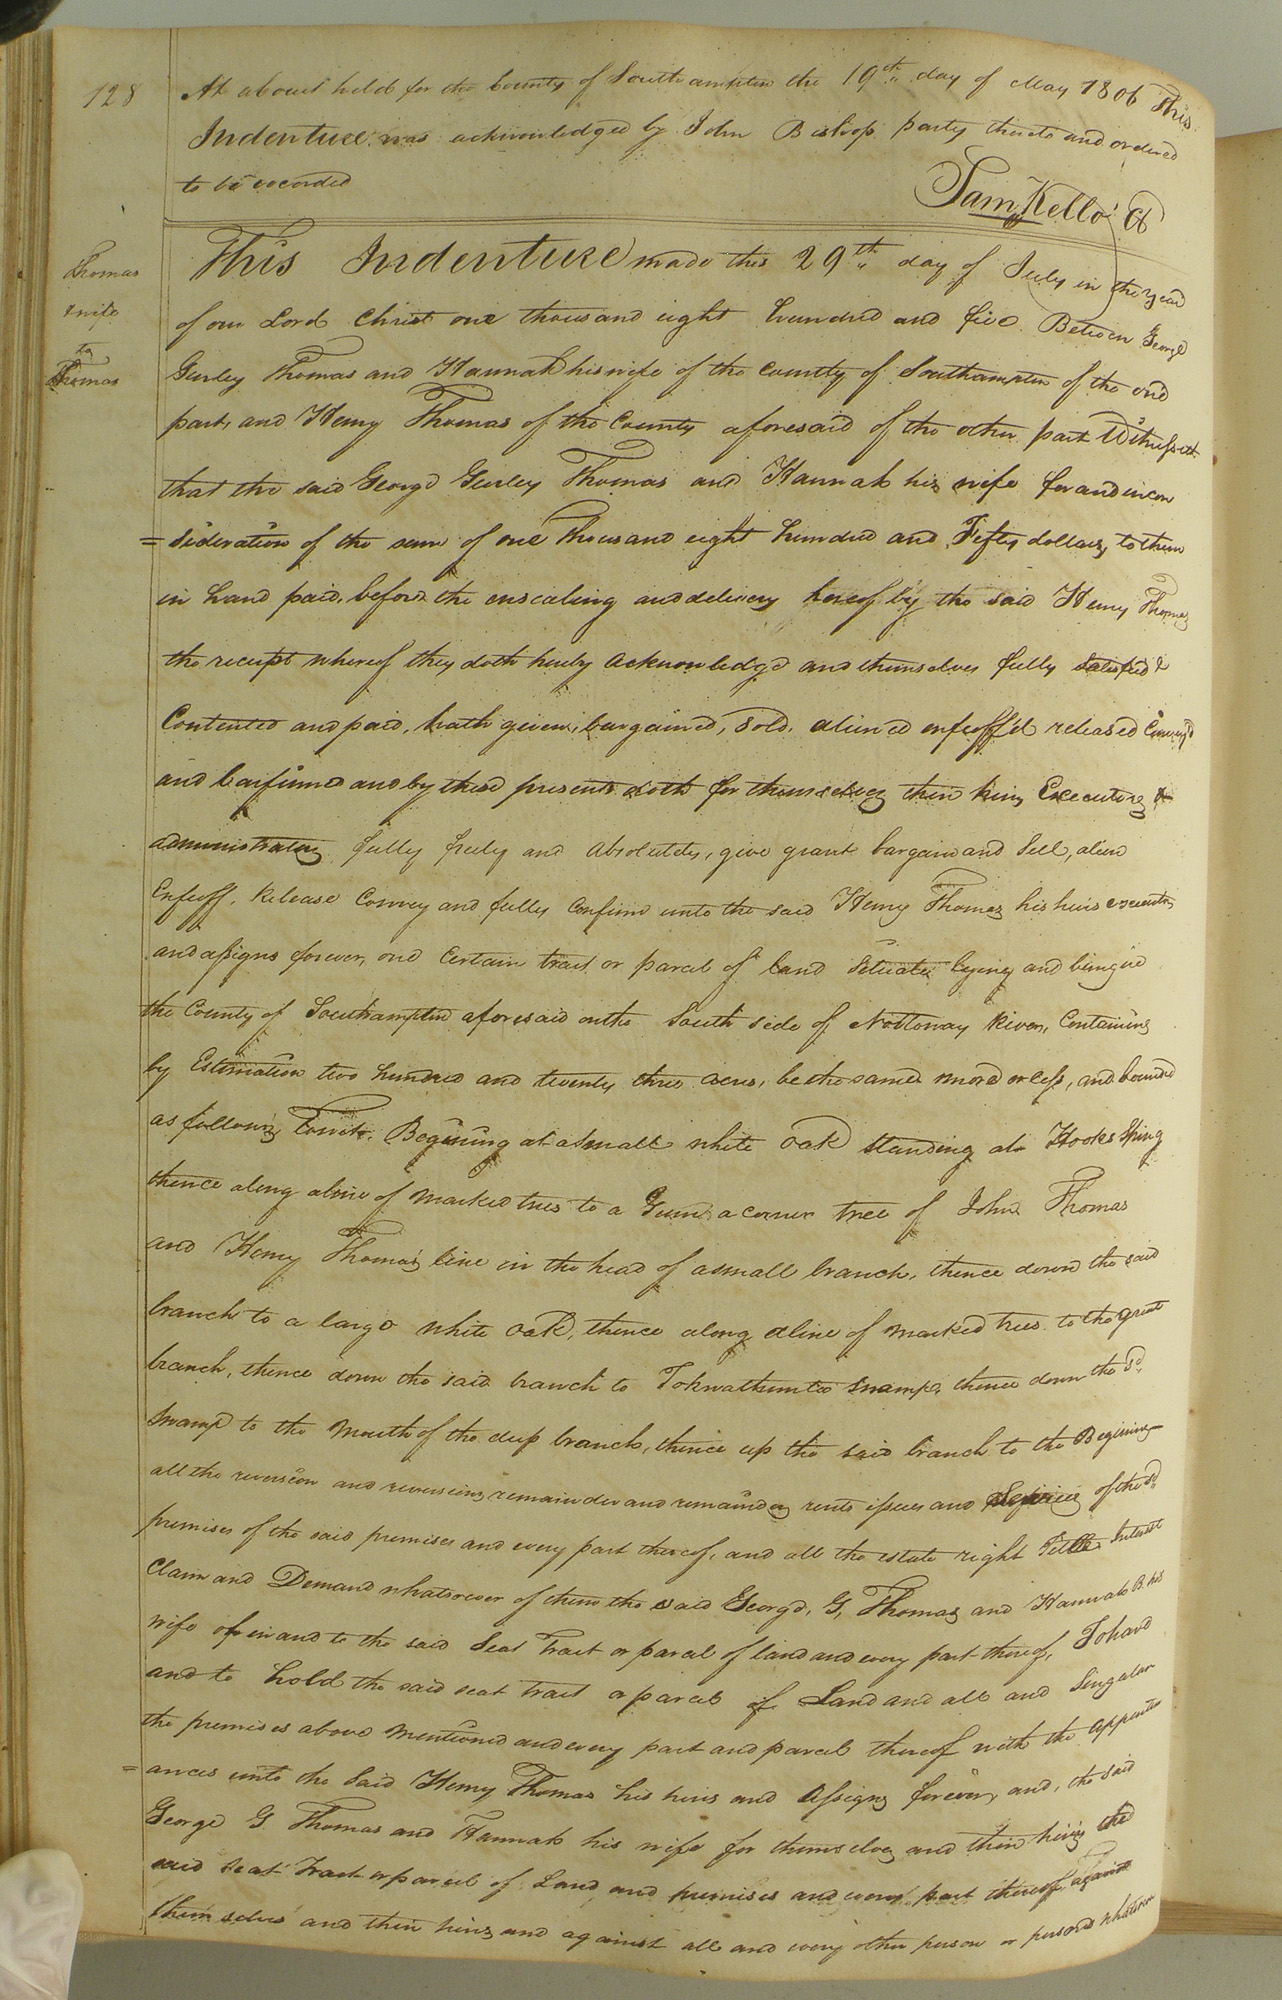 128
At a Court held for the County of Southampton the 19th day of May 1806 This
Indenture was acknowledged by John Bishop party thereto and ordered
to be recorded
Sam Kello Cl
Thomas
& wife
to
Thomas
This Indenture made this 29th day of July in the year
of our Lord Christ one thousand eight hundred and five Between George
Gurley Thomas and Hannah his wife of the County of Southampton of the one
part, and Henry Thomas of the County aforesaid of the other part Witnesseth
that the said George Gurley Thomas and Hannah his wife for and in con
=sideration of the sum of one Thousand eight hundred and Fifty dollars, to them
in hand paid, before the ensealing and delivery hereof by the said Henry Thomas
the receipt whereof they doth hereby acknowledge and themselves fully satisfied &
Contented and paid, hath given, bargained, sold, aliened enfeoff'd released Convey'd
and Confirmed and by these presents doth for themselves their heirs Executors &
administrators fully freely and absolutely, give grant bargain and Sell, alien
Enfeoff, Release Convey and fully Confirm unto the said Henry Thomas his heirs executors
and assigns forever, one Certain tract or parcel of land Situate lying and being in
the County of Southampton aforesaid on the South side of Nottoway River, Containing
by Estimation two hundred and twenty three acres, be the same more or less, and bounded
as follows, Towit. Begining at a small white oak standing at Hooks Spring
thence along a line of marked trees to a Gum a corner tree of John Thomas
and Henry Thomas's line in the head of a small branch, thence down the said
branch to a large white oak, thence along a line of marked trees to the great
branch, thence down the said branch to Tokwathuntee swamp, thence down the sd.
Swamp to the Mouth of the deep branch, thence up the said branch to the Begining
all the reversion and reversions, remainder and remainders rents issues and Service of the sd.
premises of the said premises and every part thereof, and all the estate right Title Interest
Claim and Demand whatsoever of them the said George, G, Thomas and Hannah B. his
wife of in and to the said Seat Tract or parcel of land and every part thereof, To have
and to hold the said seat tract or parcel of Land and all and Singular
the premises above mentioned and every part and parcel thereof with the appurten
=ances unto the said Henry Thomas his heirs and Assigns forever, and, the said
George G Thomas and Hannah his wife for themselves and their heirs, the
said seat Tract or parcel of Land and premises and every part thereof against
themselves and their heirs, and against all and every other person or persons whatsoever